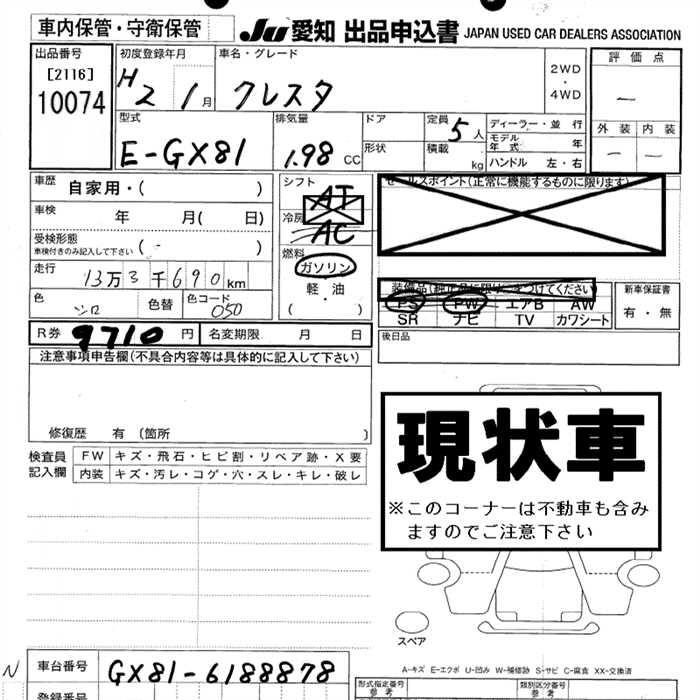 車内保管・守衛保管
JU 愛知 出品申込書 JAPAN USED CAR DEALERS ASSOCIATION
出品番号
[2116]
10074
初度登録年月
H2 1月
車名・グレード
クレスタ
2WD
・
4WD
評価点
—
外装 内装
— —
型式
E-GX81
排気量
1.98 CC
ドア
形状
定員 5人
積載 kg
ディーラー・並行
モデル年式 年
ハンドル 左・右
車歴 自家用・( )
車検 年 月( 日)
受検形態
車検付きのみ記入して下さい ( - )
走行 13万3千690km
色 シロ 色替 色コード 050
シフト AT
冷房 AC
燃料
ガソリン
・
軽・油
( )
セールスポイント(正常に機能するものに限ります)
PS PW エアB AW
SR ナビ TV カワシート
新車保証書
有・無
後日品
R券 9710 円 名変期限 月 日
注意事項申告欄(不具合内容等は具体的に記入して下さい)
修復歴 有 〔箇所 〕
検査員記入欄
FW キズ・飛石・ヒビ割・リペア跡・X要
内装 キズ・汚レ・コゲ・穴・スレ・キレ・破レ
現状車
※このコーナーは不動車も含み
ますのでご注意下さい
スペア
A-キズ E-エクボ U-凹み W-補修跡 S-サビ C-腐食 XX-交換済
N 車台番号 GX81-6188878
登録番号
形式指定番号
参考
類別区分番号
参考